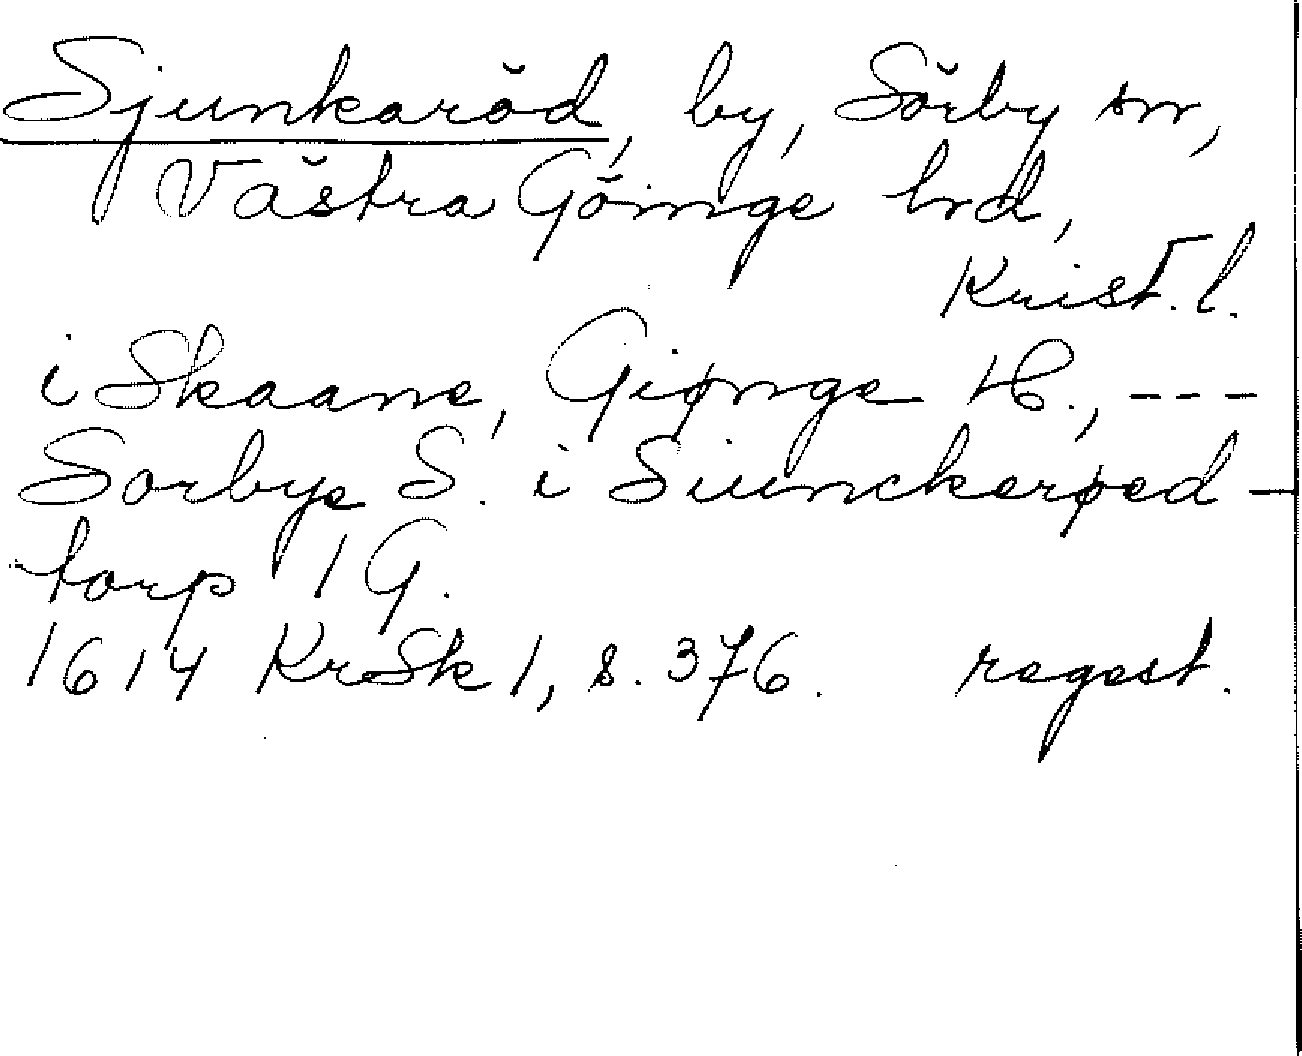 Sjunkaröd, by, Sörby sn,
Västra Göinge hrd,
Krist. l.
i Skaane, Giønge H., ---
Sorbye S. i Siunckerøed –
torp 1 G.
1614 KrSk 1, s. 376. regest.